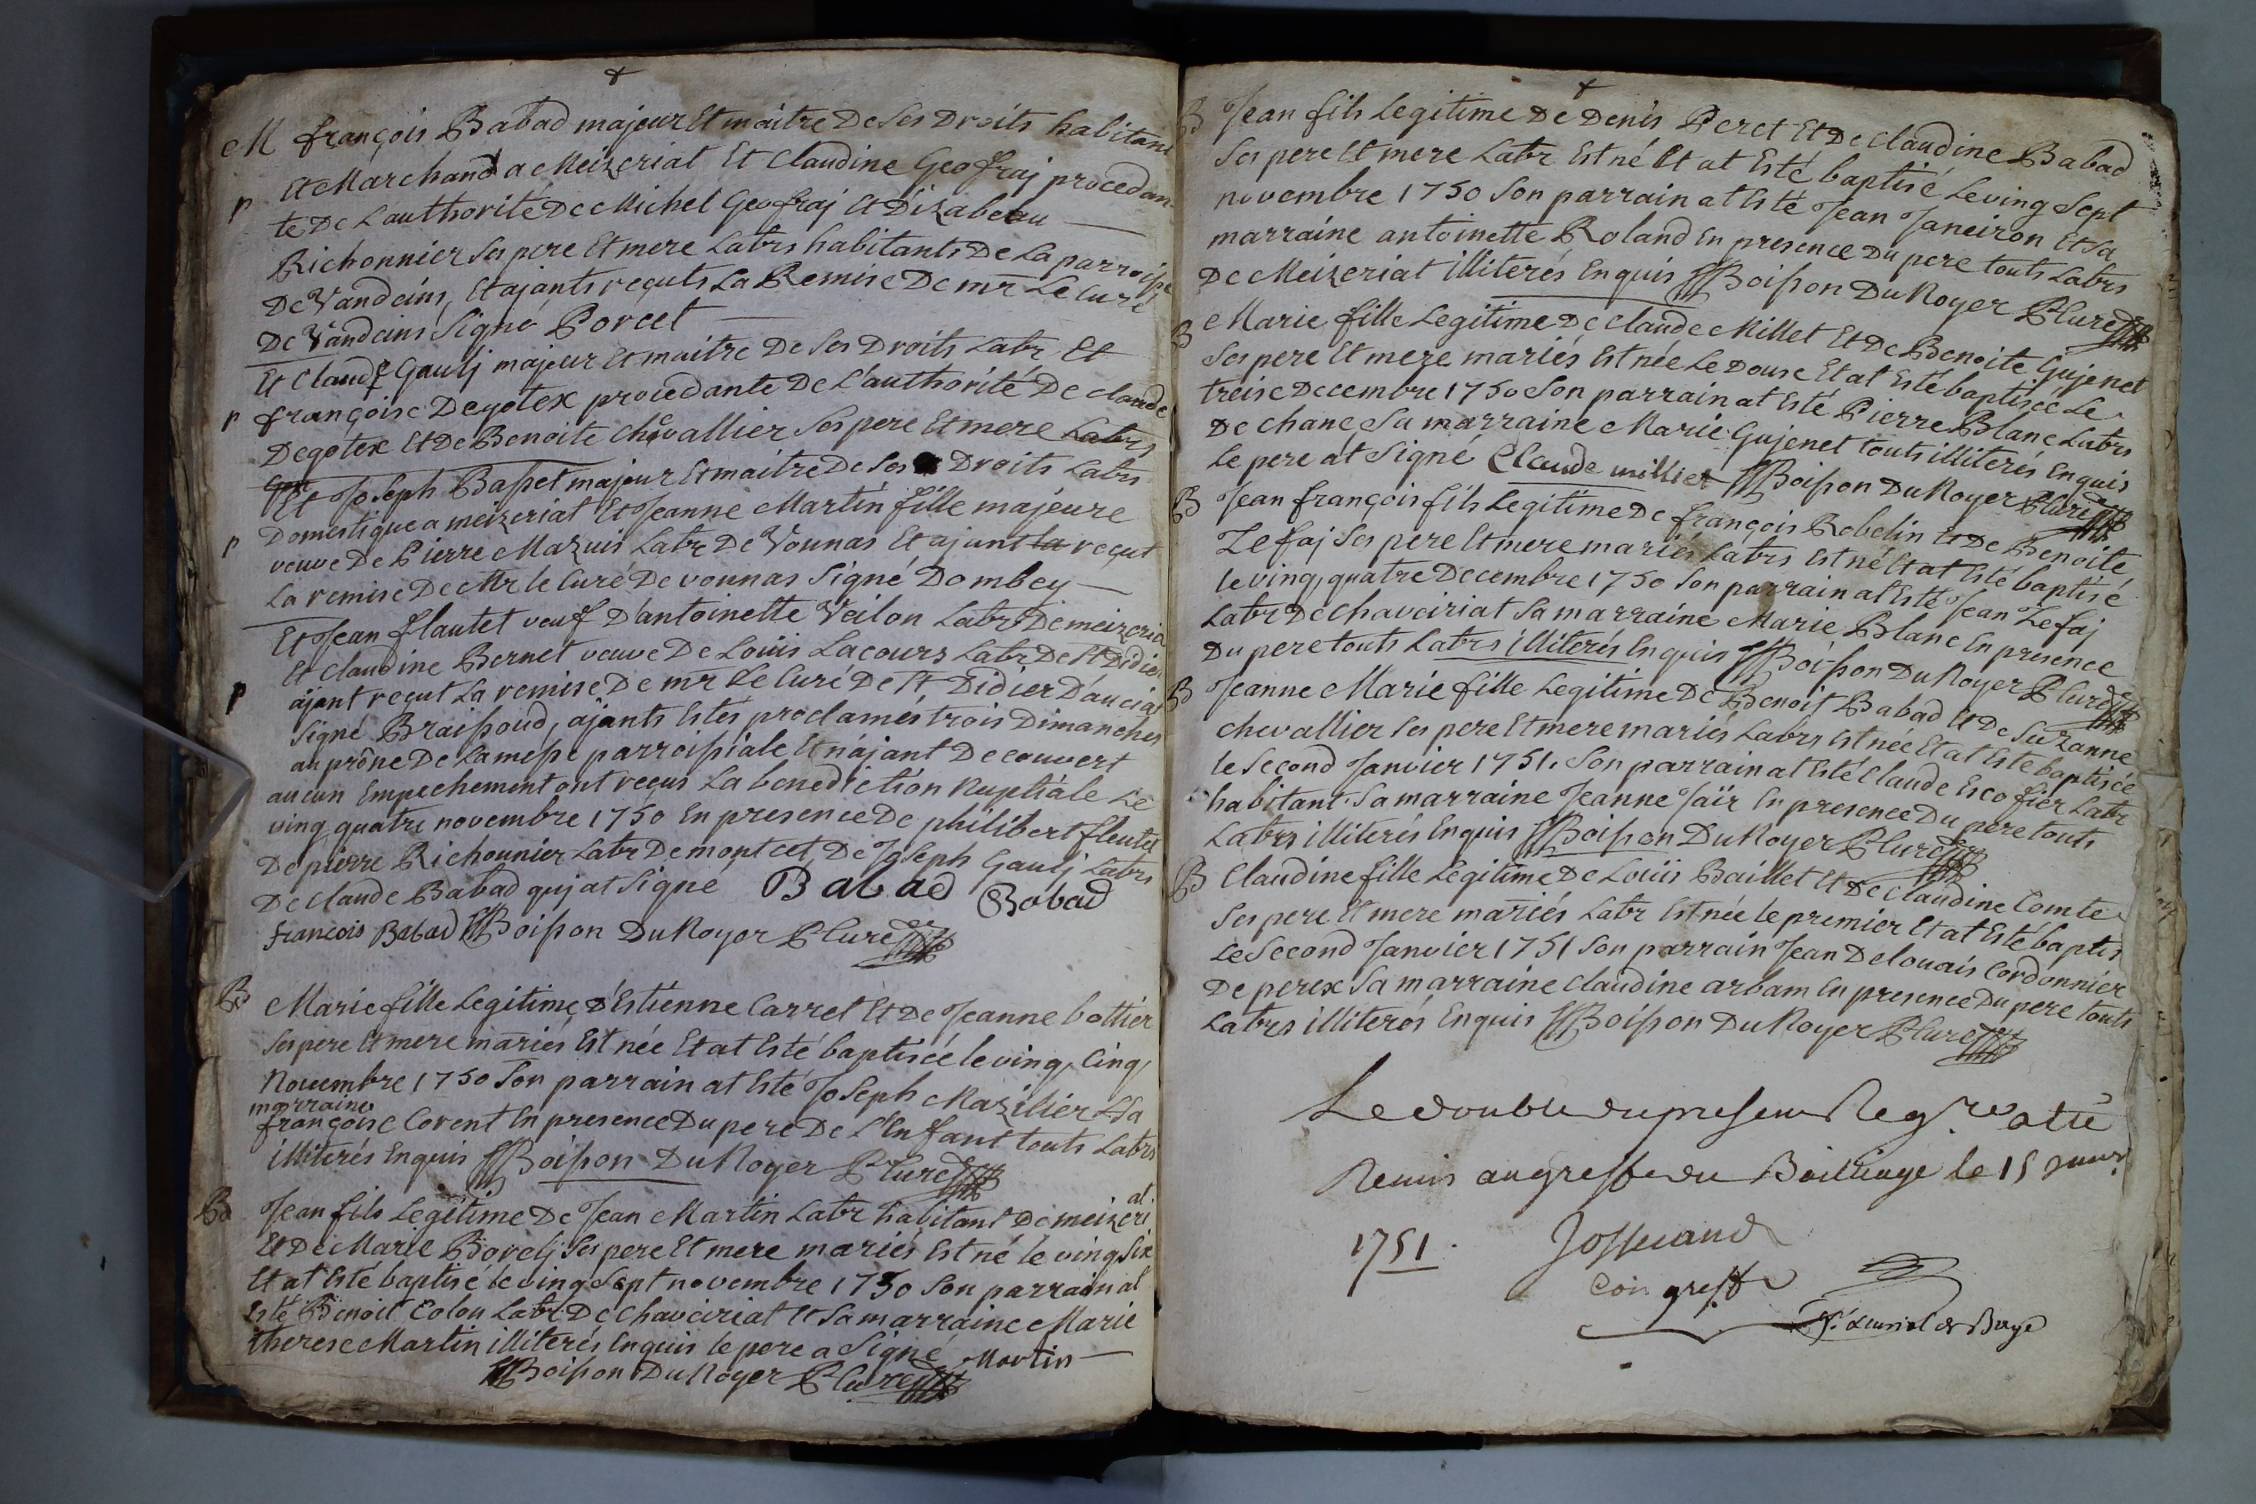 M françois Babad majeur Et maitre De Ses Droits habitant
Et Marchand a Meizeriat Et Claudine Geofraj procedan
p
te De L'authorité De Michel Geofraj Et Dizabeau
Richonnier Ses pere Et mere Labrs habitants De La parroisse
De Vandeins, Et ajants reçuts La Remise De mr Le Curé
De Vandeins Signé Porcet
Et Claude Gaulj majeur Et maitre De Ses Droits Labr Et
p françoise Degotex procedante De L'authorité De claude
Degotex Et De Benoite chevallier Ses pere Et mere Labrs
Et Joseph Basset majeur Et maitre De Ses Droits Labrs
Domestique a meizeriat Et Jeanne Martin fille majeure
p veuve De Pierre Mazuis Labr De Vonnas Et ajant la reçut
La remise De Mr le Curé De vonnas Signé Dombey
Et Jean flautet veuf D'antoinette Veilon Labr De meizeria
Et Claudine Bernet veuve De Loüis Lacours Labr De St Didier
p ajant reçut La remise De mr Le Curé De St Didier D'auciat
Signé Braissoud, ajants Estés proclamés trois Dimanches
au prône De La messe parroissiale Et n'ajant Decouvert
aucun Empechement ont reçus La benediction Nuptiale Le
ving quatre novembre 1750 En presence De philibert fleutet
De pierre Richonnier Labr De montcet De Joseph Gaulj Labrs
De Claude Babad quj at Signé Babad Babad
francois Babad Boisson DuNoyer P Curé
B Marie fille Legitime d'Estienne Carret Et De Jeanne bottier
Ses pere Et mere mariés Est née Et at Esté baptisée le ving, Cinq,
Novembre 1750 Son parrain at Esté Joseph Mazilier Et Sa
marraine
françoise Corent En presence Du pere De L'Enfant touts Labrs
illiterés Enquis Boisson DuNoyer P Curé
B Jean fils Legitime De Jean Martin Labr habitant De meizeri
at.
Et De Marie Borelj Ses pere Et mere mariés Est né le ving Six
Et at Esté baptisé le ving Sept novembre 1750 Son parrain at
Esté Benoit Colon Labr De Chaveiriat Et Sa marraine Marie
therese Martin illiterés Enquis le pere a Signé Martin
Boisson DuNoyer P Curé
B Jean fils Legitime De Denis Peret Et De Claudine Babad
Ses pere Et mere Labr Est né Et at Esté baptisé Le ving Sept
novembre 1750 Son parrain at Esté Jean Janeiron Et Sa
marraine antoinette Roland En presence Du pere touts Labrs
De Meizeriat illiterés Enquis Boisson DuNoyer P Curé
B Marie fille Legitime De Claude Millet Et De Benoite Gujenet
Ses pere Et mere mariés Est née Le Douse Et at Esté baptisée Le
treise Decembre 1750 Son parrain at Esté Pierre Blanc Labrs
De chane Sa marraine Marie Gujenet touts illiterés Enquis
Le pere at Signé Claude milliet Boisson DuNoyer P Curé
B Jean françois fils Legitime De françois Robelin Et De Benoite
Zefaj Ses pere Et mere mariés Labrs Est né Et at Esté baptisé
le ving, quatre Decembre 1750 Son parrain at Esté Jean Zefaj
Labr De chaveiriat Sa marraine Marie Blanc En presence
Du pere touts Labrs illiterés Enquis Boisson DuNoyer P Curé
B Jeanne Marie fille Legitime De Benoit Babad Et De Suzanne
chevallier Ses pere Et mere mariés Labrs Est née Et at Esté baptisée
le Second Janvier 1751. Son parrain at Esté Claude Escofier Labr
habitant. Sa marraine Jeanne Jaïr En presence Du pere touts
Labrs illiterés Enquis Boisson DuNoyer P Curé
B Claudine fille Legitime De Loüis Baillet Et De Claudine Comte
Ses pere Et mere mariés Labr Est née le premier Et at Esté baptis
Le Second Janvier 1751 Son parrain Jean Delouais Cordonnier
De perex Sa marraine Claudine arbam En presence Du pere touts
Labrs illiterés Enquis Boisson DuNoyer P Curé
Le double du presen Regre a été
Remis au greffe du Bailliage le 15
1751. Josserand
Com greffe